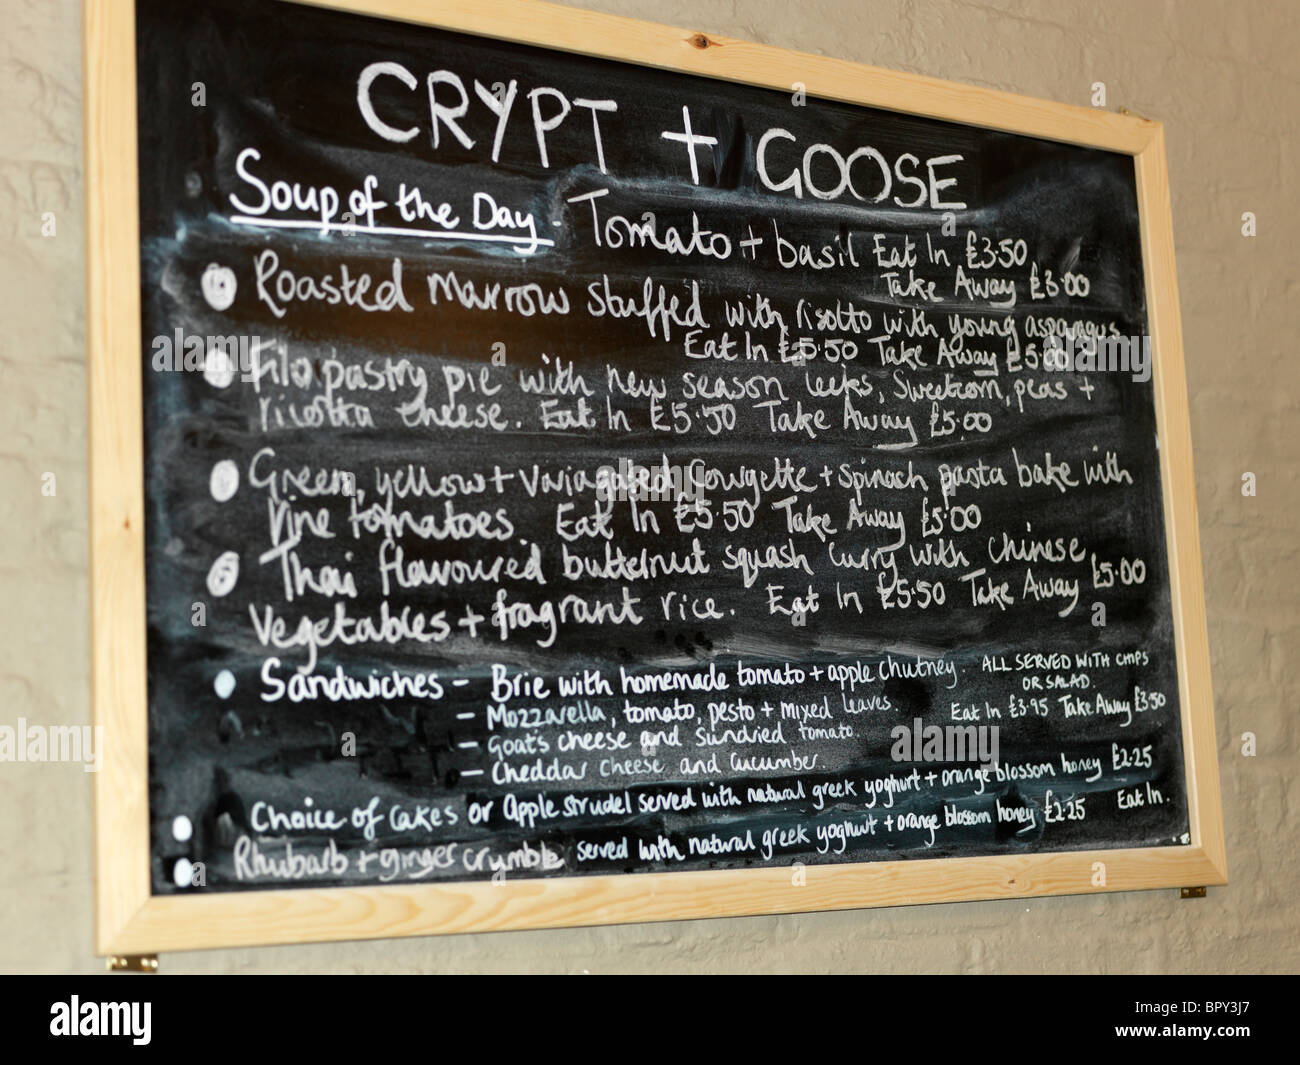 CRYPT + GOOSE
Soup of the Day - Tomato + basil Eat In £3.50
Take Away £3.00
Roasted Marrow stuffed with risotto with young asparagus
Eat In £5.50 Take Away £5.00
Filo pastry pie with new season leeks, Sweetcorn, peas +
ricotta cheese. Eat In £5.50 Take Away £5.00
Green, yellow + Variagated Courgette + spinach pasta bake with
Vine tomatoes. Eat In £5.50 Take Away £5.00
Thai flavoured butternut squash curry with chinese
Vegetables + fragrant rice. Eat In £5.50 Take Away £5.00
Sandwiches - Brie with homemade tomato + apple chutney. ALL SERVED WITH CHIPS
OR SALAD.
- Mozzarella, tomato, pesto + mixed leaves. Eat In £3.95 Take Away £3.50
- Goat's cheese and sundried tomato.
- Cheddar cheese and cucumber.
Choice of cakes or Apple strudel served with natural greek yoghurt + orange blossom honey £2.25
Eat In.
Rhubarb + ginger crumble served with natural greek yoghurt + orange blossom honey £2.25
alamy
Image ID: BPY3J7
www.alamy.com